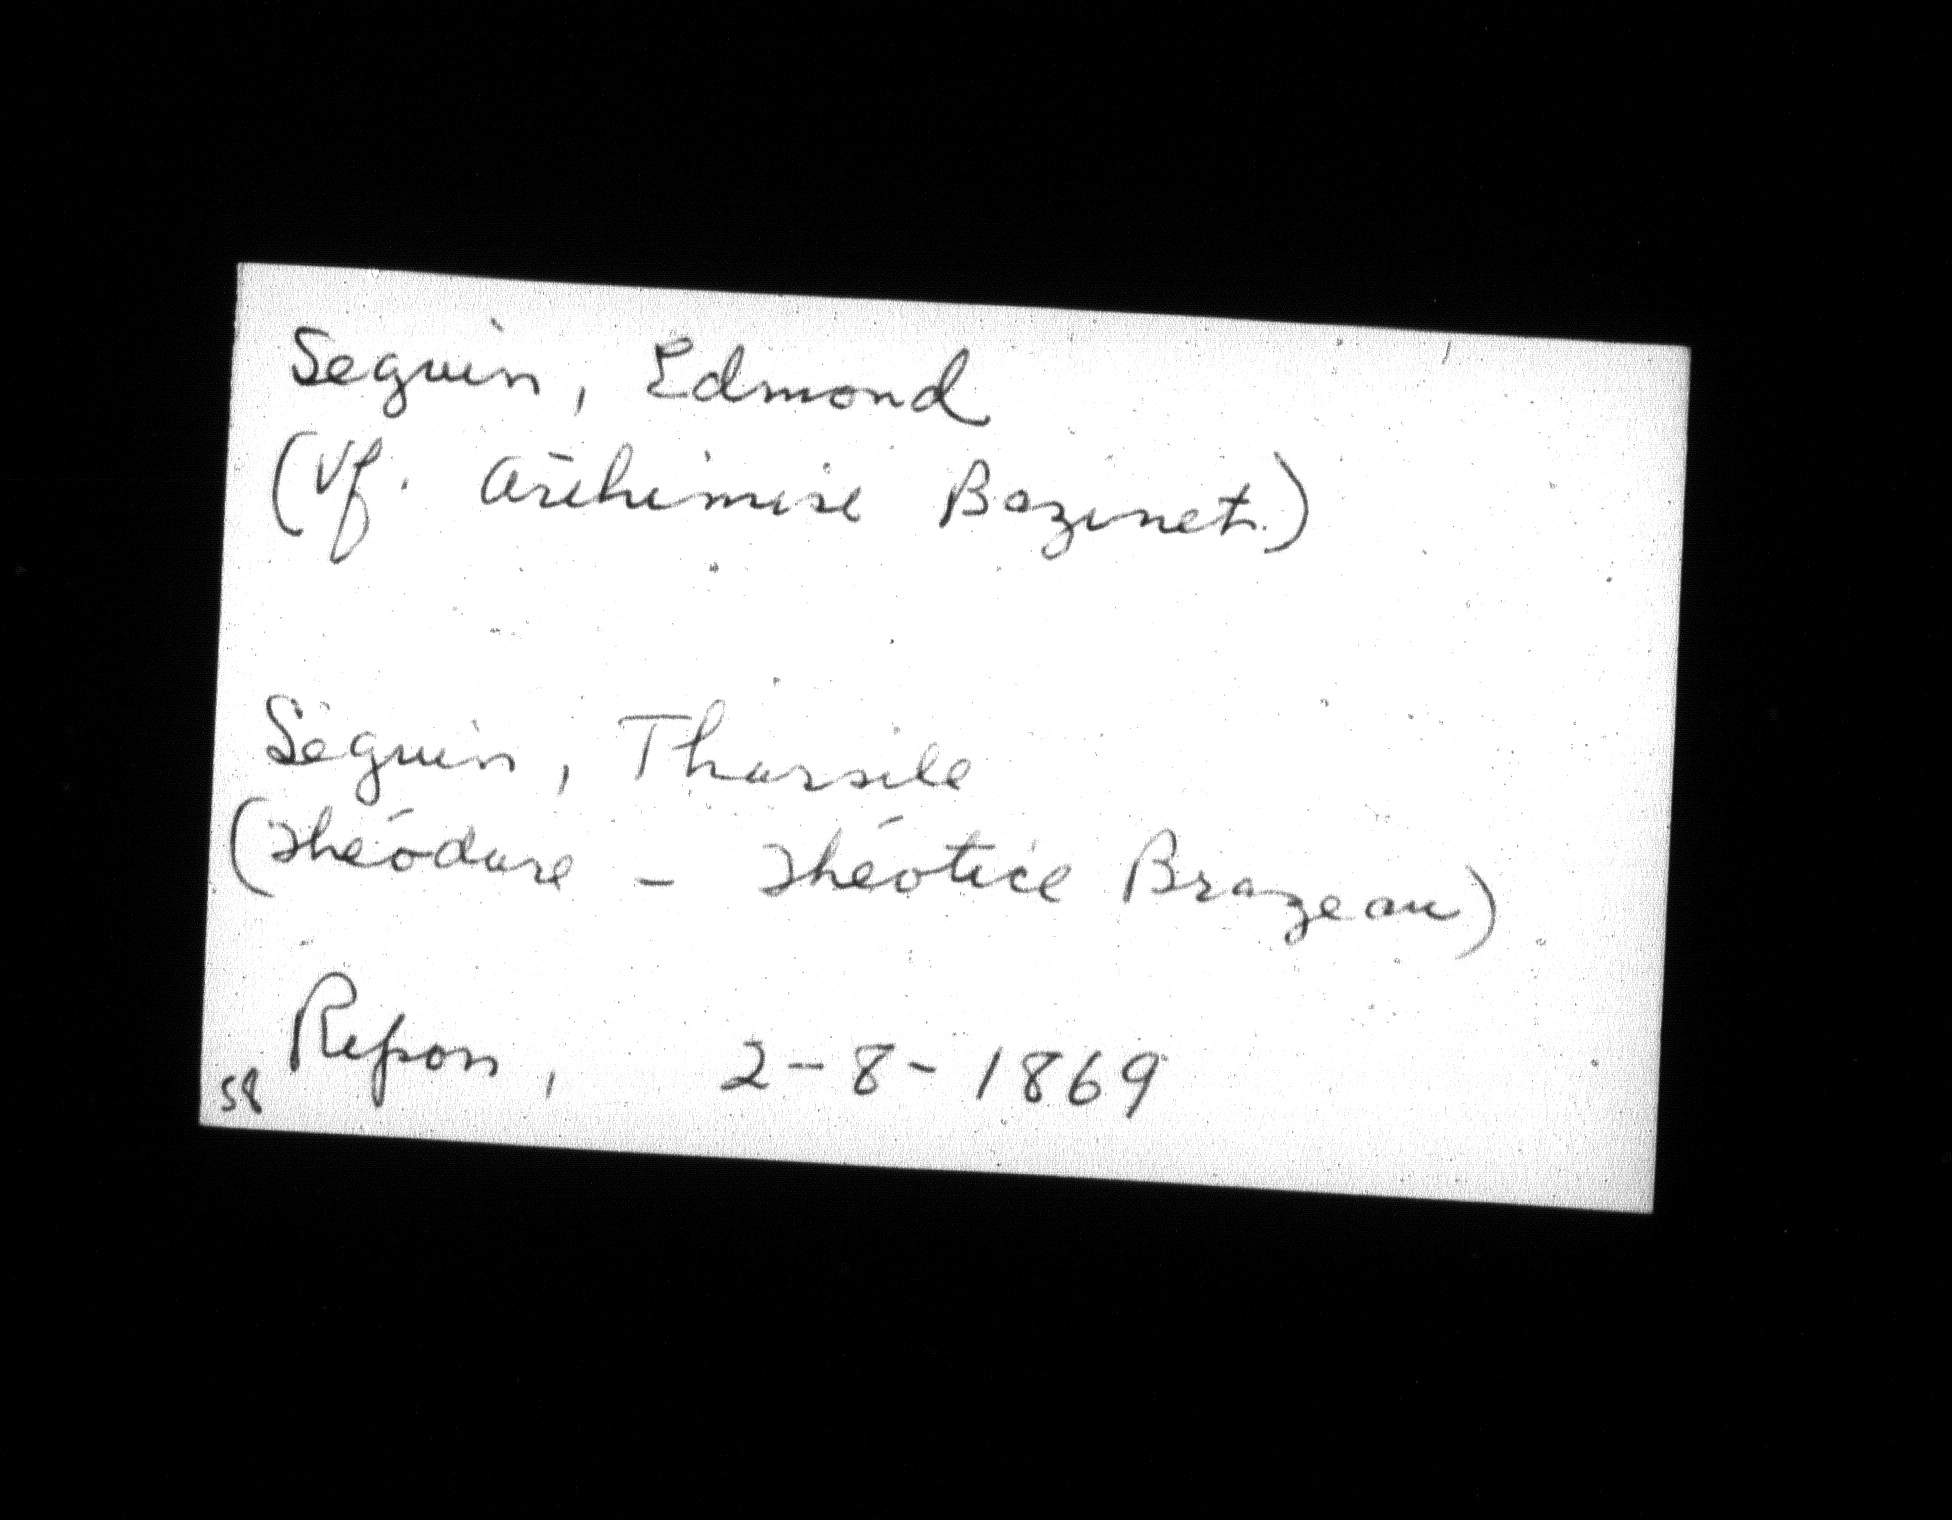 Seguin, Edmond
(Vf. Archimise Bazinet.)
Séguin, Tharsile
(Théodore - Théotice Brazeau)
Ripon, 2-8-1869
58